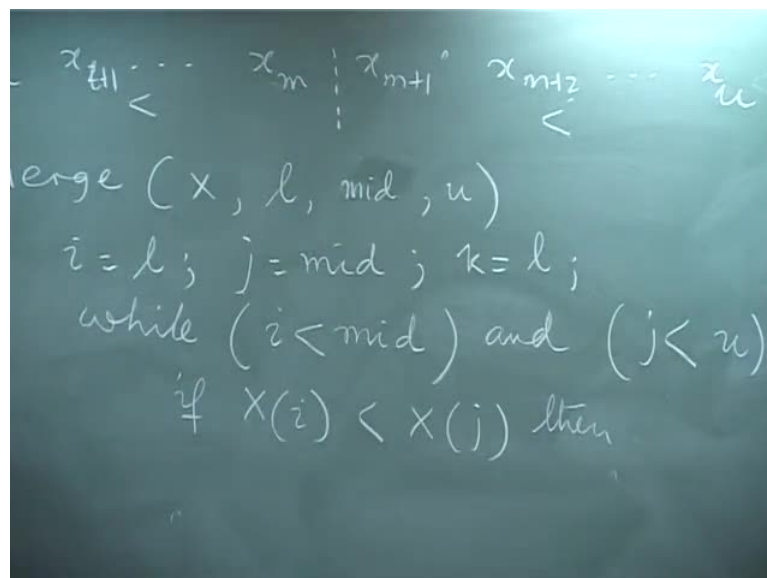 x_{l+1} ... x_m | x_{m+1} x_{m+2} ... x_u
< <
erge (X, l, mid, u)
i = l; j = mid; k = l;
while (i < mid) and (j < u)
if X(i) < X(j) then